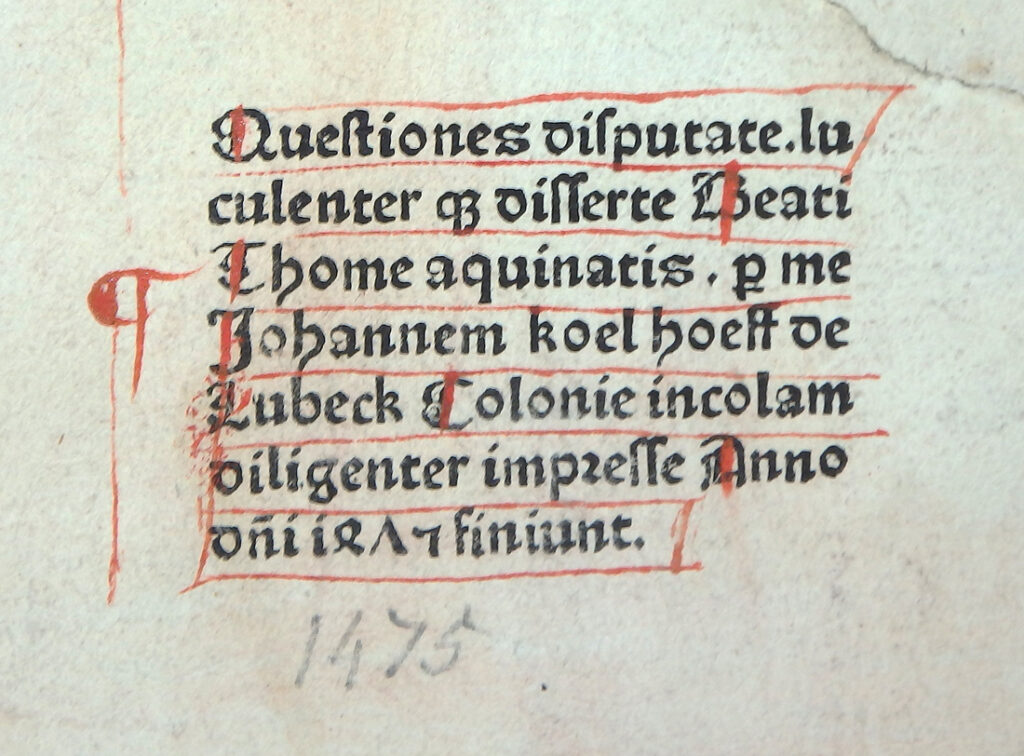 Questiones disputate. lu
culenter qꝫ disserte Beati
Thome aquinatis . ꝑ me
Johannem koel hoeff de
Lubeck Colonie incolam
diligenter impresse Anno
dñi iꝝΛ7 finiunt.
1475